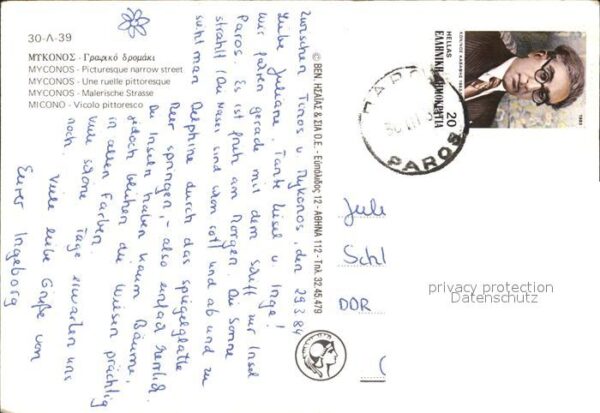 30-Λ-39
ΜΥΚΟΝΟΣ - Γραφικό δρομάκι
MYCONOS - Picturesque narrow street
MYCONOS - Une ruelle pittoresque
MYCONOS - Malerische Strasse
MICONO - Vicolo pittoresco
Zwischen Tinos u Mykonos, den 29.3.84
Liebe Juliane, Tante Liesel u. Inge!
Wir fahren gerade mit dem Schiff zur Insel
Paros. Es ist früh am Morgen. Die Sonne
strahlt (die Nasen sind schon rot) und ab und zu
sieht man Delphine durch das spiegelglatte
Meer springen, - also einfach herrlich.
Die Inseln haben kaum Bäume,
jedoch blühen die Wiesen prächtig
in allen Farben.
Viele schöne Tage erwarten uns
noch. Viele liebe Grüße von
Eurer Ingeborg
© ΒΕΝ. ΗΣΑΪΑΣ & ΣΙΑ Ο.Ε. - Εύπόλιδος 12 - ΑΘΗΝΑ 112 - Τηλ. 32.45.479
ΕΛΛΗΝΙΚΗ ΔΗΜΟΚΡΑΤΙΑ
HELLAS
20
1983
PAROS
Jule
Schl
DDR
privacy protection
Datenschutz